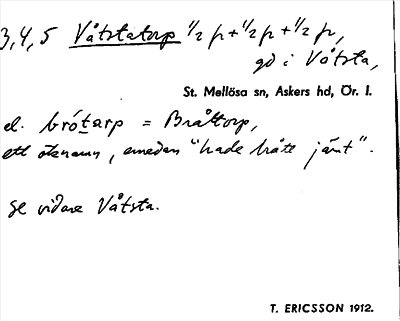 3, 4, 5 Våtstatorp 1/2 fr + 1/2 fr + 1/2 fr,
gd i Våtsta,
St. Mellösa sn, Askers hd, Ör. l.
el. brótarp = Bråttorp,
ett öknamn, emedan "hade bråte jämt".
Se vidare Våtsta.
T. ERICSSON 1912.